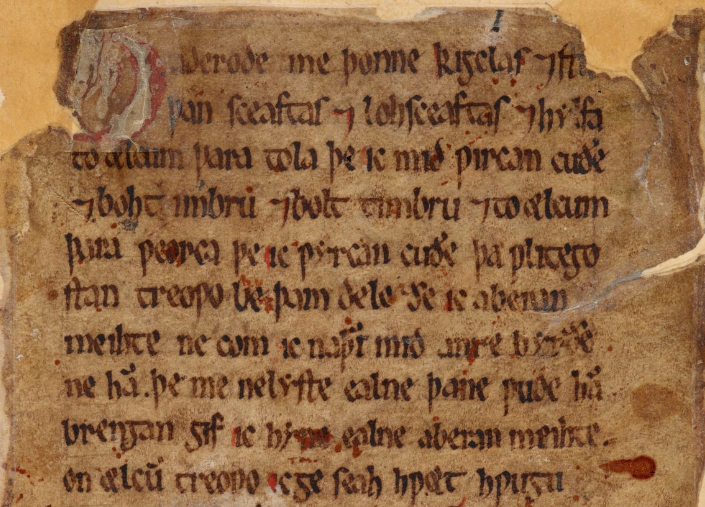 Gaderode me þonne kigclas ⁊ stu
þan sceaftas ⁊ lohsceaftas ⁊ hylfa
to ælcum þara tola þe ic mid ƿircan cuðe
⁊ bohtimbru ⁊ bolt timbru ⁊ to ælcum
þara ƿeorca þe ic ƿyrcan cuðe þa ƿlitego
stan treoƿo be þam dele ðe ic aberan
meihte ne com ic naþer mid anre byrðe
ne hā þe me ne lyste ealne þane ƿude hā
brengan gif ic hyne ealne aberan meihte.
on ælcū treoƿo ic geseah hƿæt hƿugu